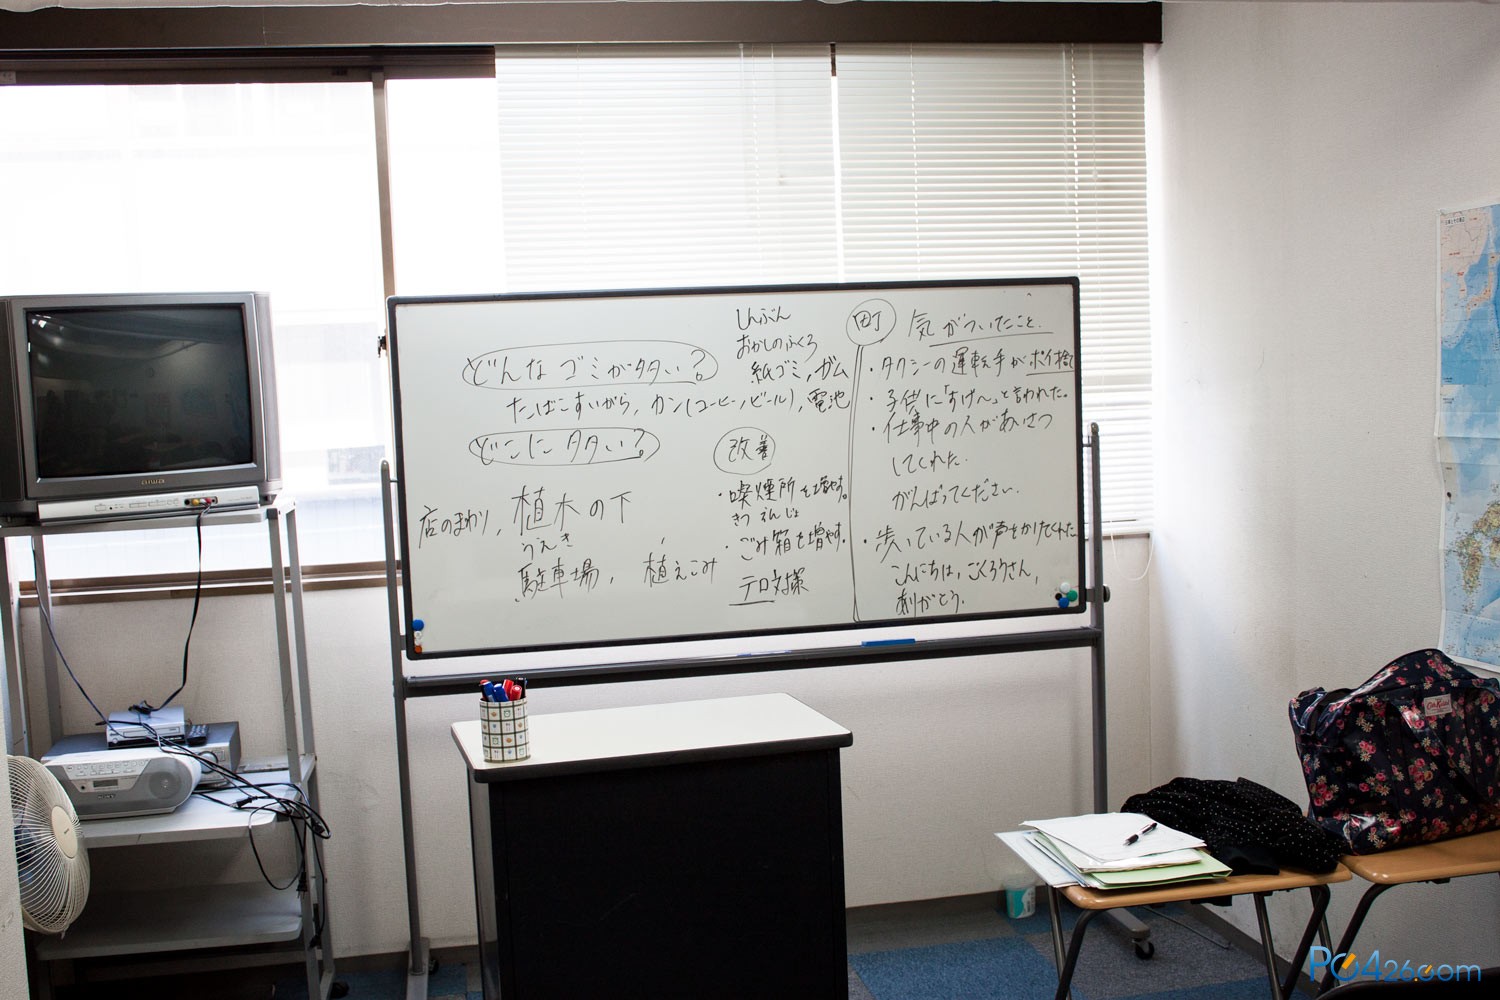 どんなゴミが多い？
しんぶん
おかしのふくろ
紙ゴミ，ガム
たばこすいがら，カン(コーヒー／ビール)，電池
どこに多い？
店のまわり，植木の下
うえき
駐車場，植えこみ
改善
・喫煙所を増やす。
きつえんじょ
・ごみ箱を増やす。
テロ対策
町 気がついたこと.
・タクシーの運転手がポイ捨て
・子供に「すげ～」と言われた。
・仕事中の人があいさつ
してくれた.
がんばってください.
・歩いている人が声をかけてくれた
こんにちは，ごくろうさん，
ありがとう.
aiwa
SONY
Cath Kidston
PO426.com